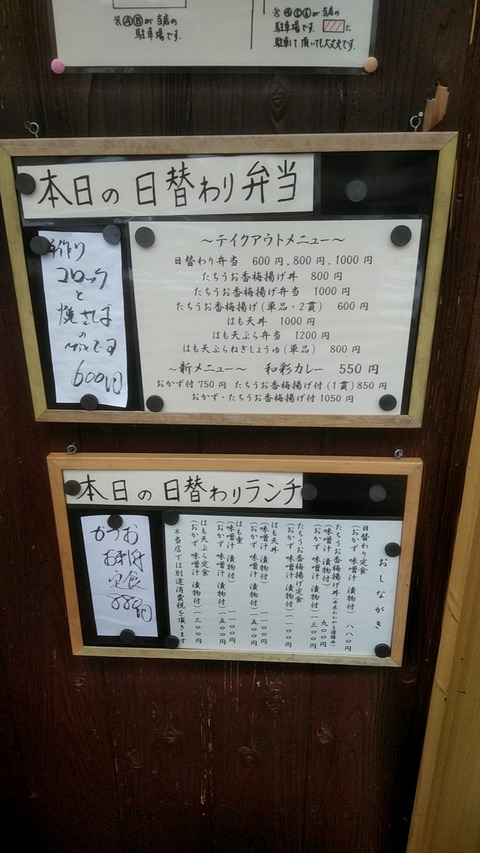 ※ⒶⒷが当店の
駐車場です。
が当店の
駐車場です。
に
駐車して頂いても大丈夫です。
本日の日替わり弁当
手作り
コロッケ
と
焼きそば
の
です
600円
～テイクアウトメニュー～
日替わり弁当 600円、800円、1000円
たちうお香梅揚げ丼 800円
たちうお香梅揚げ弁当 1000円
たちうお香梅揚げ(単品・2貫) 600円
はも天丼 1000円
はも天ぷら弁当 1200円
はも天ぷらねぎしょうゆ(単品) 800円
～新メニュー～ 和彩カレー 550円
おかず付750円 たちうお香梅揚げ付(1貫)850円
おかず・たちうお香梅揚げ付1050円
本日の日替わりランチ
かつお
お刺身
定食
880円
おしながき
日替わり定食
(おかず 味噌汁 漬物付) 八八〇円
たちうお香梅揚げ丼
(味噌汁 漬物付) 九〇〇円
たちうお香梅揚げ定食
(おかず 味噌汁 漬物付) 一三〇〇円
はも天丼
(味噌汁 漬物付) 一一〇〇円
(おかず 味噌汁 漬物付) 一五〇〇円
はも重
(味噌汁 漬物付) 一一〇〇円
(おかず 味噌汁 漬物付) 一五〇〇円
はも天ぷら定食
(おかず 味噌汁 漬物付) 一三〇〇円
※当店では別途消費税を頂きます